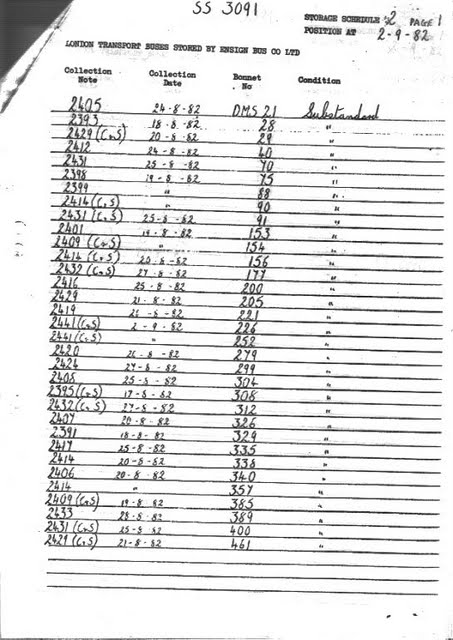 SS 3091
STORAGE SCHEDULE 2 PAGE 1
POSITION AT 2-9-82
LONDON TRANSPORT BUSES STORED BY ENSIGN BUS CO LTD
Collection Note Collection Date Bonnet No Condition
2405 24-8-82 DMS 21 Substandard
2393 18-8-82 28 "
2429 (C&S) 20-8-82 29 "
2412 24-8-82 40 "
2431 25-8-82 70 "
2398 19-8-82 75 "
2399 " 88 "
2414 (C&S) " 90 "
2431 (C&S) 25-8-82 91 "
2401 19-8-82 153 "
2409 (C&S) " 154 "
2414 (C&S) 20-8-82 156 "
2432 (C&S) 27-8-82 177 "
2416 25-8-82 200 "
2429 21-8-82 205 "
2419 26-8-82 221 "
2441 (C&S) 2-9-82 226 "
2441 (C&S) " 252 "
2420 26-8-82 279 "
2424 27-8-82 299 "
2408 25-8-82 304 "
2395 (C&S) 17-8-82 308 "
2432 (C&S) 27-8-82 312 "
2407 20-8-82 326 "
2391 18-8-82 329 "
2417 25-8-82 335 "
2414 20-8-82 338 "
2406 20-8-82 340 "
2414 " 357 "
2409 (C&S) 19-8-82 385 "
2433 28-8-82 389 "
2431 (C&S) 25-8-82 400 "
2429 (C&S) 21-8-82 461 "